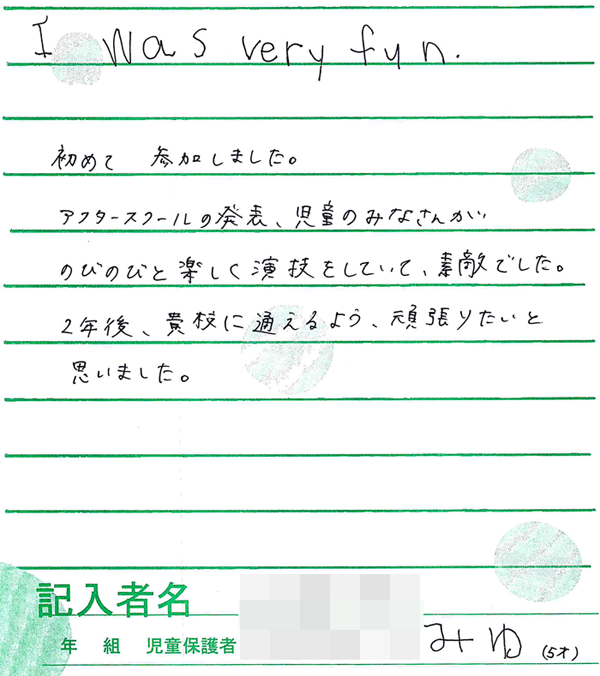 I was very fun.
初めて 参加しました。
アフタースクールの発表、児童のみなさんが
のびのびと楽しく演技をしていて、素敵でした。
2年後、貴校に通えるよう、頑張りたいと
思いました。
記入者名
年 組 児童保護者 みゆ (5才)